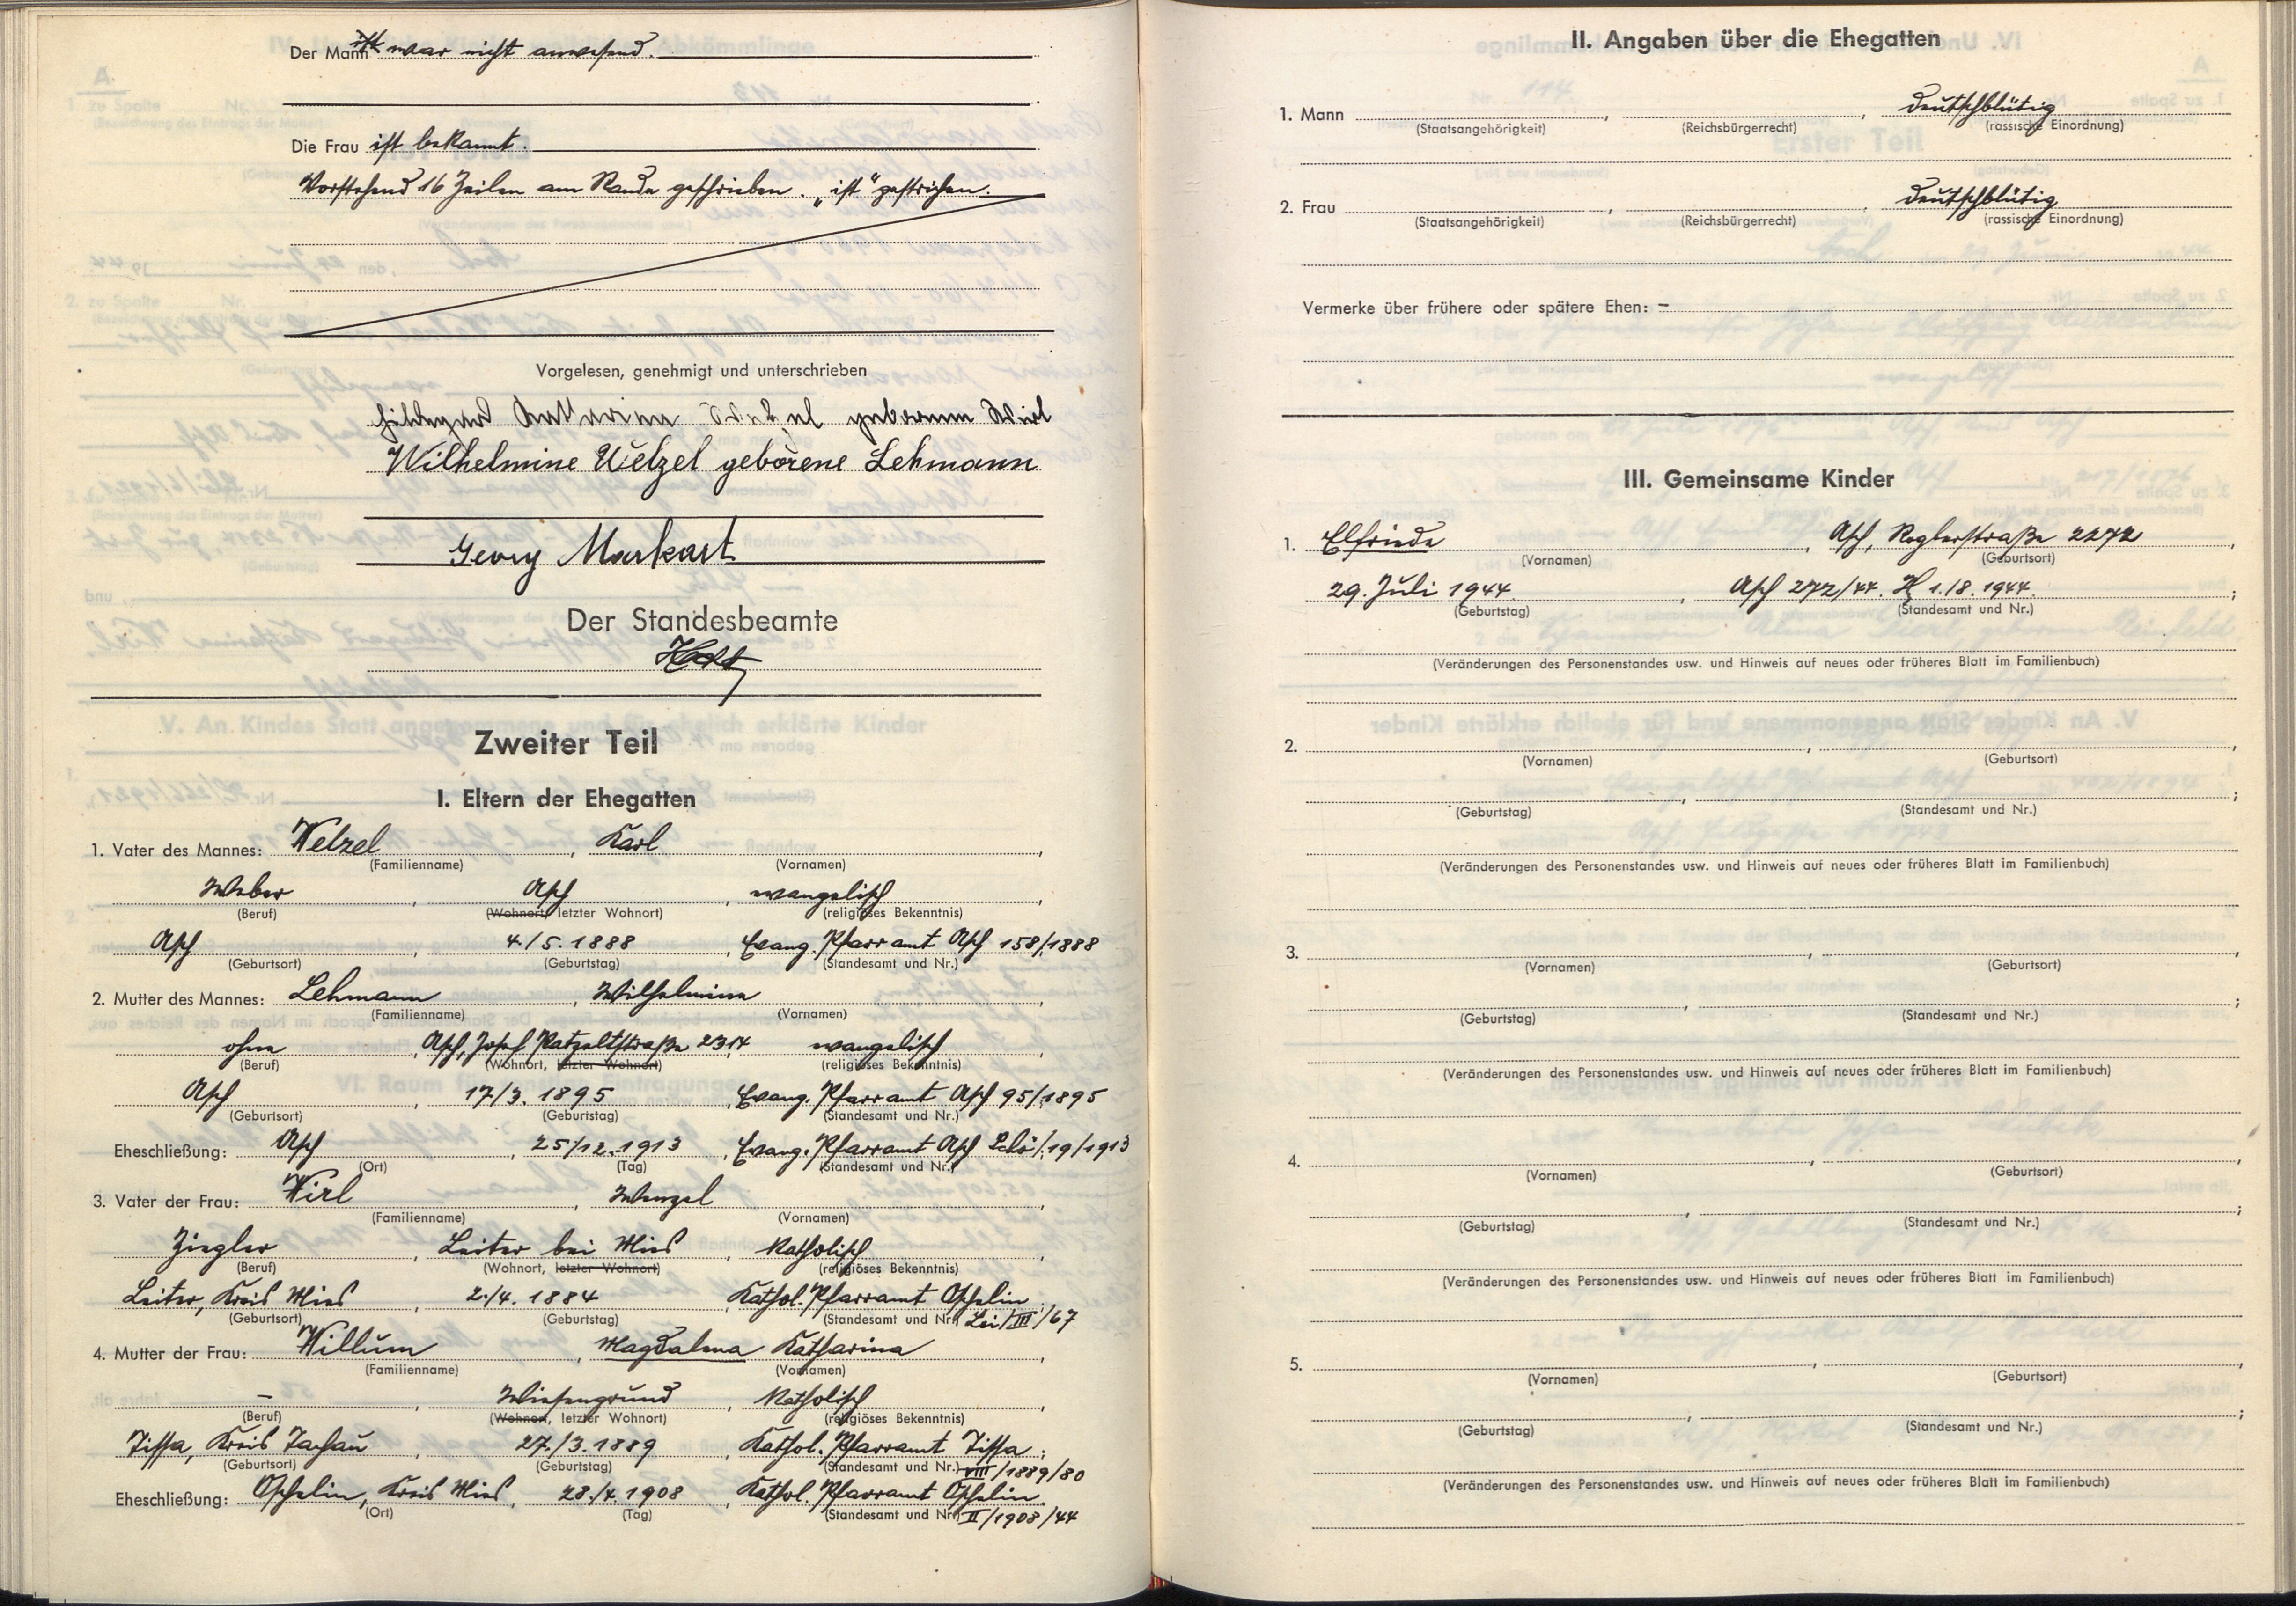 Der Mann ist war nicht anwesend.
Die Frau ist bekannt.
Vorstehend 16 Zeilen am Rande geschrieben. „ist“ gestrichen.
Vorgelesen, genehmigt und unterschrieben
Hildegard Katharina Wetzel geborene Wirl
Wilhelmine Wetzel geborene Lehmann
Georg Markart
Der Standesbeamte
Zweiter Teil
I. Eltern der Ehegatten
1. Vater des Mannes: Wetzel, Karl,
(Familienname) (Vornamen)
Weber, Asch, evangelisch,
(Beruf) (Wohnort, letzter Wohnort) (religiöses Bekenntnis)
Asch, 4./5. 1888, Evang. Pfarramt Asch 158/1888
(Geburtsort) (Geburtstag) (Standesamt und Nr.)
2. Mutter des Mannes: Lehmann, Wilhelmine,
(Familienname) (Vornamen)
ohne, Asch, Josef Patzeltstraße 2314, evangelisch,
(Beruf) (Wohnort, letzter Wohnort) (religiöses Bekenntnis)
Asch, 17/3. 1895, Evang. Pfarramt Asch 95/1895
(Geburtsort) (Geburtstag) (Standesamt und Nr.)
Eheschließung: Asch, 25/12. 1913, Evang. Pfarramt Asch /19/1913
(Ort) (Tag) (Standesamt und Nr.)
3. Vater der Frau: Wirl, Wenzel,
(Familienname) (Vornamen)
Ziegler, Leiter bei Mies, katholisch,
(Beruf) (Wohnort, letzter Wohnort) (religiöses Bekenntnis)
Leiter, Kreis Mies, 2./4. 1884, Kathol. Pfarramt Oschelin
(Geburtsort) (Geburtstag) (Standesamt und Nr.) Lei/III/67
4. Mutter der Frau: Willum, Magdalena Katharina,
(Familienname) (Vornamen)
–, Wiesengrund, katholisch,
(Beruf) (Wohnort, letzter Wohnort) (religiöses Bekenntnis)
Tissa, Kreis Tachau, 27./3. 1889, Kathol. Pfarramt Tissa
(Geburtsort) (Geburtstag) (Standesamt und Nr.) VIII/1889/80
Eheschließung: Oschelin, Kreis Mies, 28./4. 1908, Kathol. Pfarramt Oschelin
(Ort) (Tag) (Standesamt und Nr.) II/1908/44
II. Angaben über die Ehegatten
1. Mann , , deutschblütig
(Staatsangehörigkeit) (Reichsbürgerrecht) (rassische Einordnung)
2. Frau , , deutschblütig
(Staatsangehörigkeit) (Reichsbürgerrecht) (rassische Einordnung)
Vermerke über frühere oder spätere Ehen: –
III. Gemeinsame Kinder
1. Elfriede, Asch, Roglerstraße 2272,
(Vornamen) (Geburtsort)
29. Juli 1944, Asch 272/44. 1./8. 1944.;
(Geburtstag) (Standesamt und Nr.)
(Veränderungen des Personenstandes usw. und Hinweis auf neues oder früheres Blatt im Familienbuch)
2. , ,
(Vornamen) (Geburtsort)
, ;
(Geburtstag) (Standesamt und Nr.)
(Veränderungen des Personenstandes usw. und Hinweis auf neues oder früheres Blatt im Familienbuch)
3. , ,
(Vornamen) (Geburtsort)
, ;
(Geburtstag) (Standesamt und Nr.)
(Veränderungen des Personenstandes usw. und Hinweis auf neues oder früheres Blatt im Familienbuch)
4. , ,
(Vornamen) (Geburtsort)
, ;
(Geburtstag) (Standesamt und Nr.)
(Veränderungen des Personenstandes usw. und Hinweis auf neues oder früheres Blatt im Familienbuch)
5. , ,
(Vornamen) (Geburtsort)
, ;
(Geburtstag) (Standesamt und Nr.)
(Veränderungen des Personenstandes usw. und Hinweis auf neues oder früheres Blatt im Familienbuch)